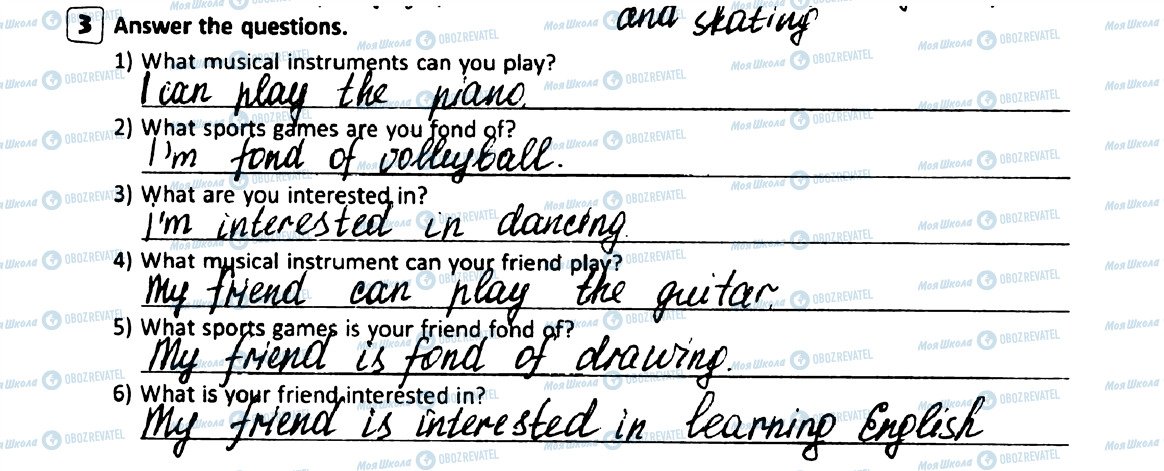 and skating
3 Answer the questions.
1) What musical instruments can you play?
I can play the piano.
2) What sports games are you fond of?
I'm fond of volleyball.
3) What are you interested in?
I'm interested in dancing.
4) What musical instrument can your friend play?
My friend can play the guitar.
5) What sports games is your friend fond of?
My friend is fond of drawing.
6) What is your friend interested in?
My friend is interested in learning English
Моя Школа OBOZREVATEL